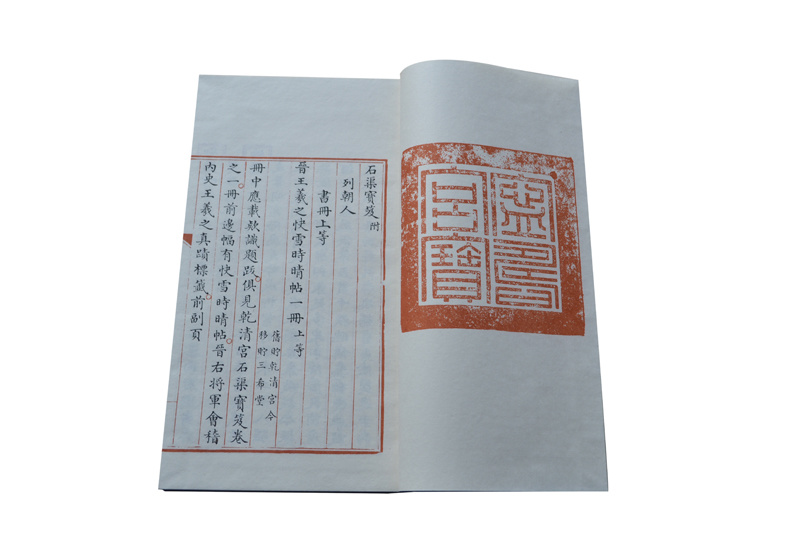 石渠寶笈 附
列朝人
書冊上等
晉王羲之快雪時晴帖一冊 上等
舊貯乾清宮今
移貯三希堂
冊中應載欵識題跋俱見乾清宮石渠寶笈卷
之一冊前邊幅有快雪時晴帖晉右將軍會稽
內史王羲之真蹟標籤前副頁